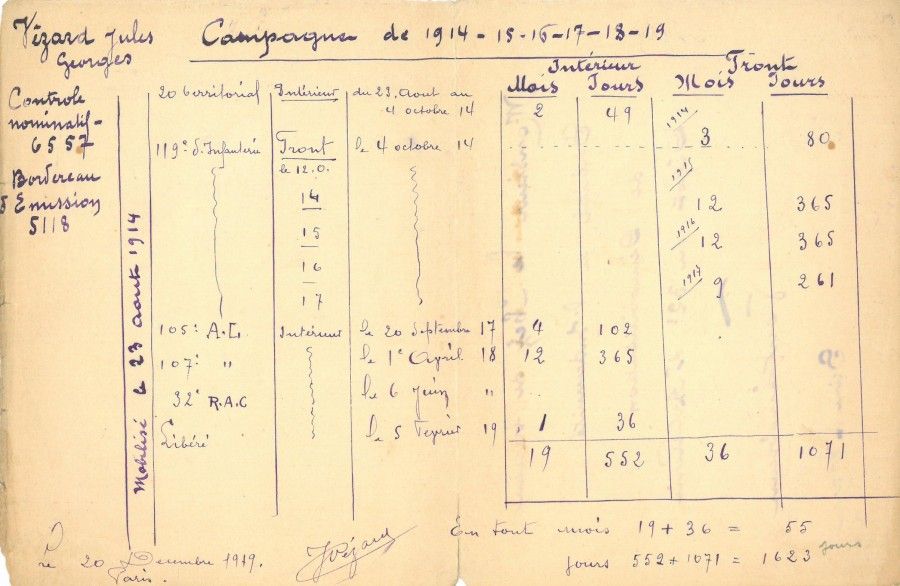 Vézard Jules
Georges
Campagne de 1914-15-16-17-18-19
Controle
nominatif-
6557
Bordereau
d'Emission
5118
Mobilisé le 23 aout 1914
Intérieur Front
Mois Jours Mois Jours
20 territorial Intérieur du 23 Aout au
4 octobre 14 2 49 1914 3 80
119e d'Infanterie Front le 4 octobre 14
le 12.0.
14 1915 12 365
15 1916 12 365
16 1917 9 261
17
105e A.L. Intérieur le 20 Septembre 17 4 102
107e " le 1e Avril 18 12 365
32e R.A.C le 6 Juin "
Libéré le 5 Février 19 1 36
19 552 36 1071
En tout mois 19 + 36 = 55
jours 552 + 1071 = 1623 jours
le 20 Decembre 1919.
Paris.
JVézard